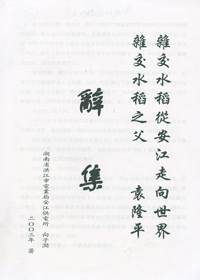 雜交水稻從安江走向世界
雜交水稻之父　袁隆平
辭集
湖南省洪江市電業局安江供電所　向子潤
二00三年　著